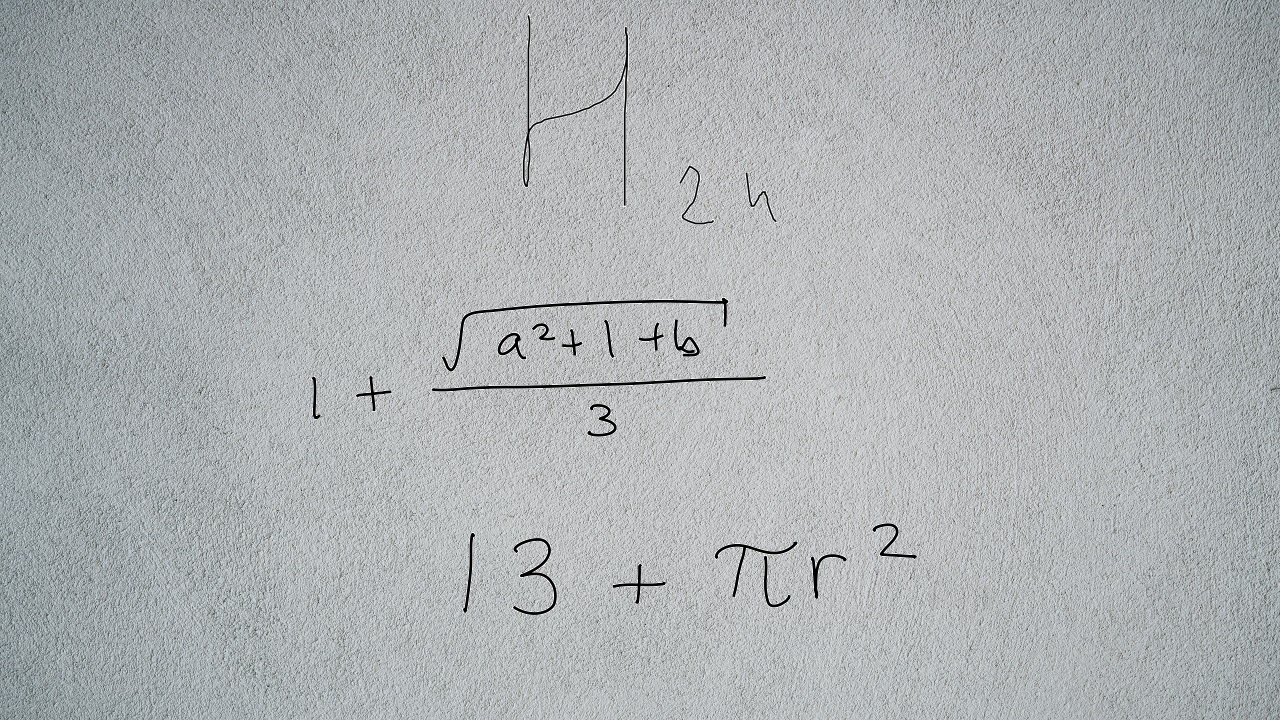 H_{2n}
1 + \frac{\sqrt{a^2+1+b}}{3}
13 + πr^2